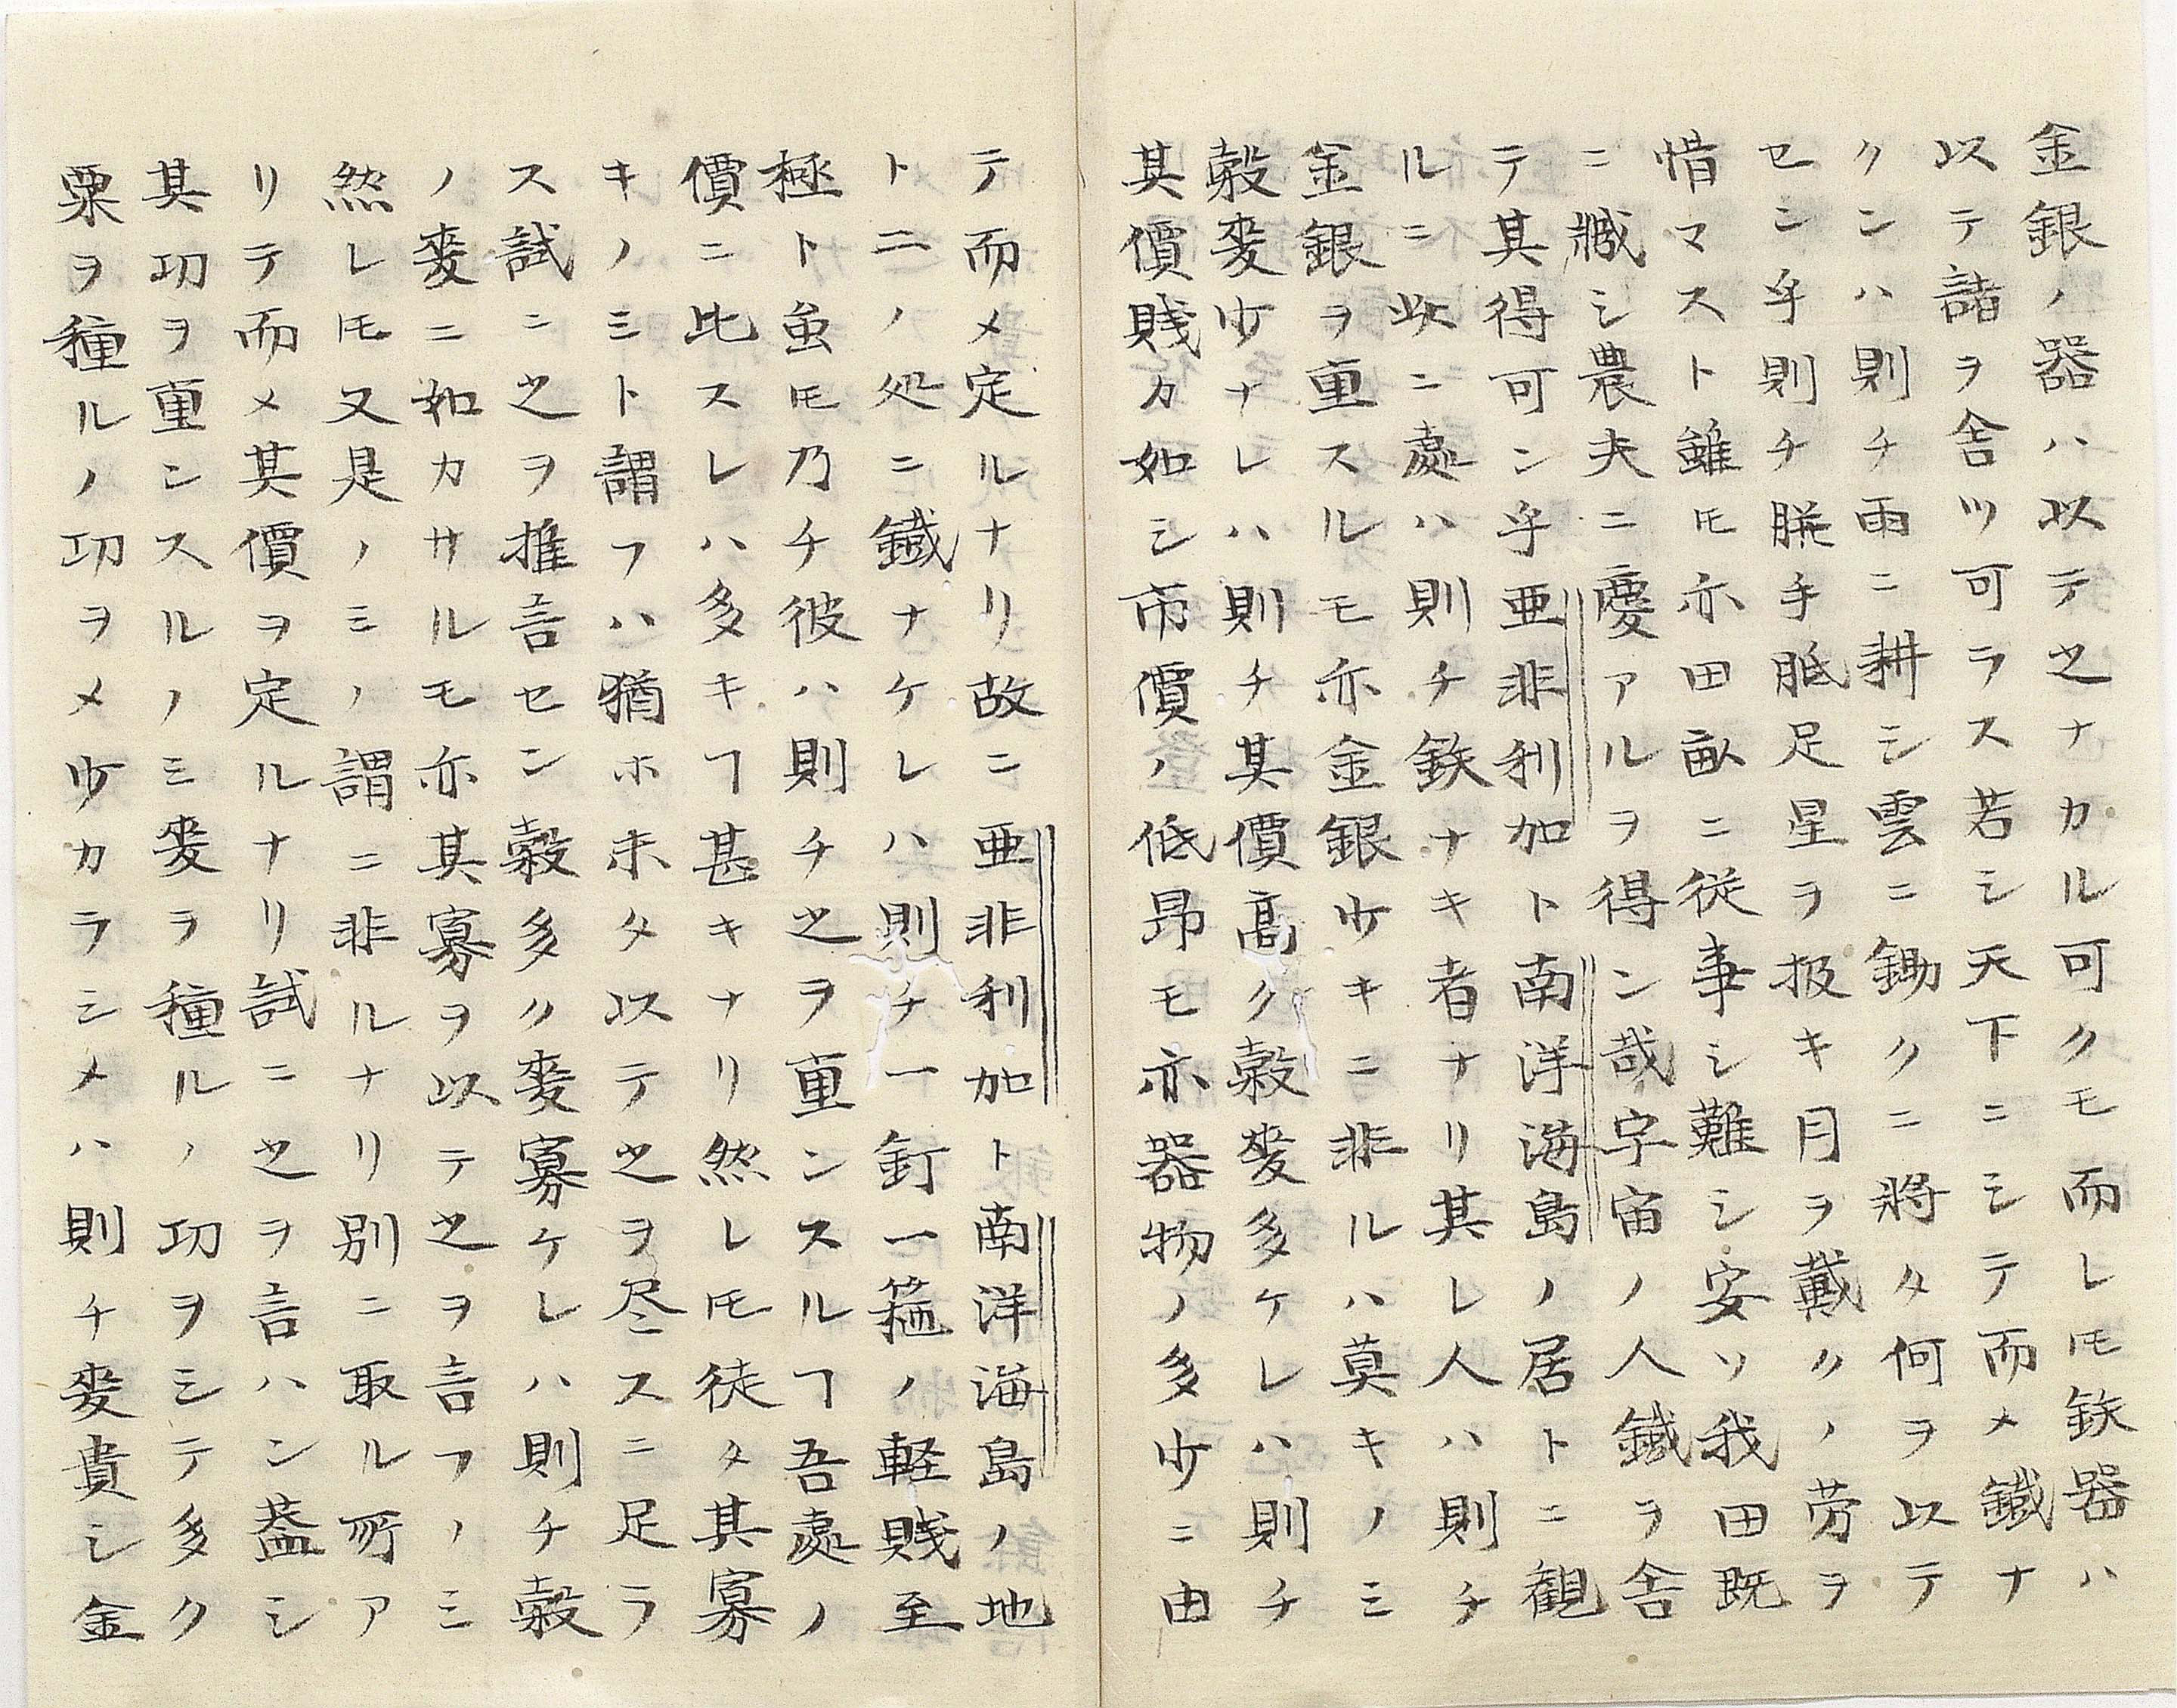 金銀ノ器ハ以テ之ナカル可クモ而レ𪜈鉄器ハ
以テ諸ヲ舎ツ可ラス若シ天下ニシテ而メ鐵ナ
クンハ則チ雨ニ耕シ雲ニ鋤クニ将タ何ヲ以テ
セン乎則チ胼手胝足星ヲ扱キ月ヲ戴クノ労ヲ
惜マスト雖𪜈亦田畝ニ従事シ難シ安ソ我田既
ニ臧シ農夫ニ慶アルヲ得ン哉宇宙ノ人鐵ヲ舎
テ其得可ン乎亜非利加ト南洋海島ノ居トニ観
ルニ此ニ處ハ則チ鉄ナキ者ナリ其レ人ハ則チ
金銀ヲ重スルモ亦金銀少キニ非ルハ莫キノミ
穀麦少ナレハ則チ其價高ク穀麦多ケレハ則チ
其價賤カ如シ市價ノ低昂モ亦器物ノ多少ニ由
テ而メ定ルナリ故ニ亜非利加ト南洋海島ノ地
ト二ノ処ニ鐵ナケレハ則チ一釘一箍ノ軽賤至
極ト虽𪜈乃チ彼ハ則チ之ヲ重ンスルヿ吾處ノ
價ニ比スレハ多キヿ甚キナリ然レ𪜈徒タ其寡
キノミト謂フハ猶ホ未タ以テ之ヲ尽スニ足ラ
ス試ニ之ヲ推言セン穀多ク麦寡ケレハ則チ穀
ノ麦ニ如カサルモ亦其寡ヲ以テ之ヲ言フノミ
然レ𪜈又是ノミノ謂ニ非ルナリ別ニ取ル所ア
リテ而メ其價ヲ定ルナリ試ニ之ヲ言ハン葢シ
其功ヲ重ンスルノミ麦ヲ種ルノ功ヲシテ多ク
粟ヲ種ルノ功ヲメ少カラシメハ則チ麦貴シ金